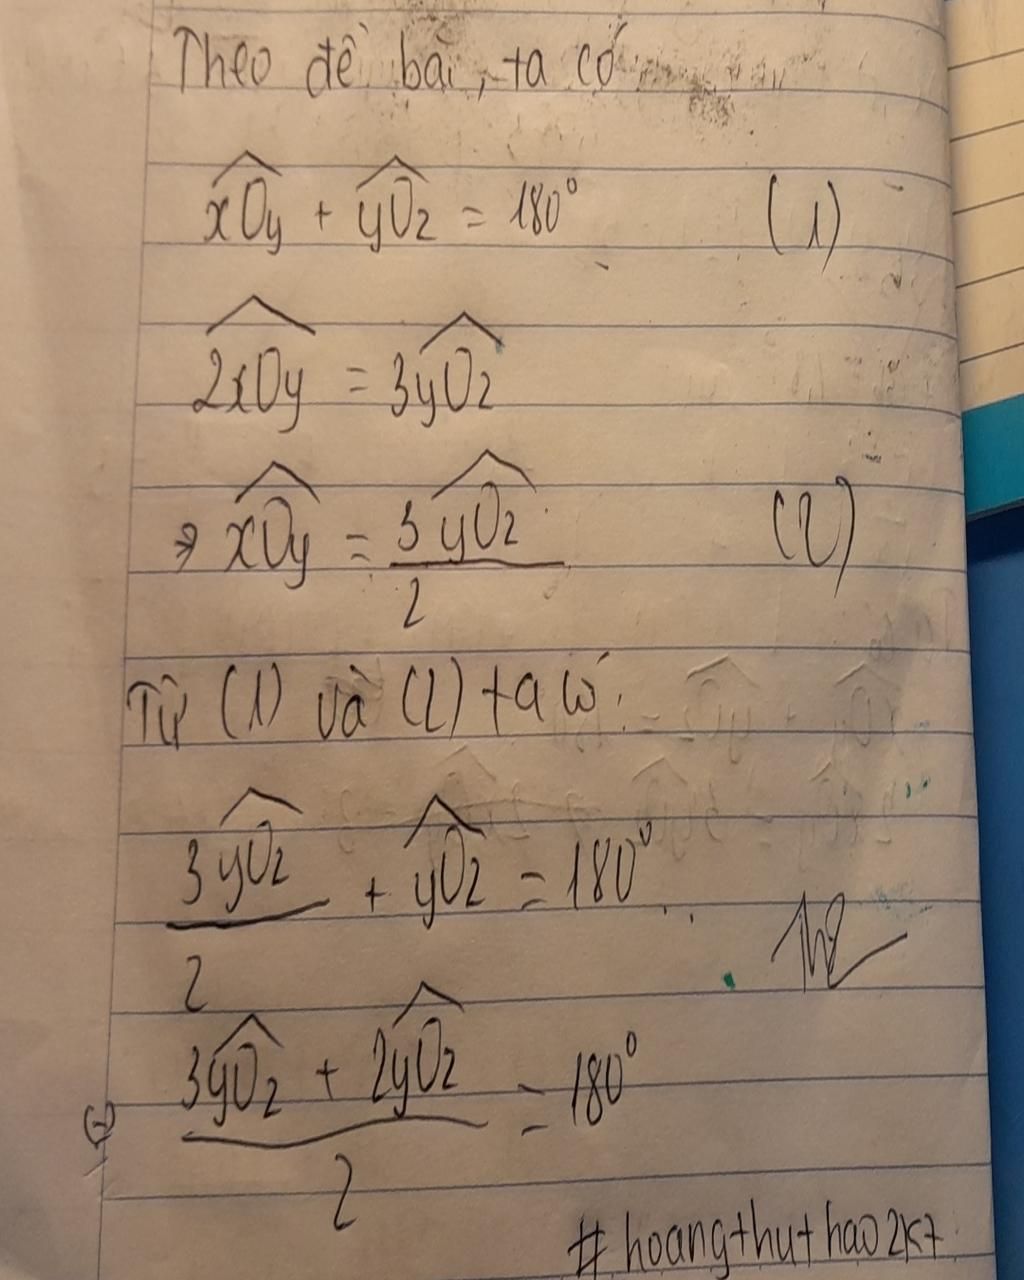 Theo đề bài, ta có
xOy + yOz = 180° (1)
2xOy = 3yOz
=> xOy = 3yOz / 2 (2)
Từ (1) và (2) ta có:
3yOz / 2 + yOz = 180°
(=) 3yOz + 2yOz / 2 = 180°
#hoangthuthao2k7